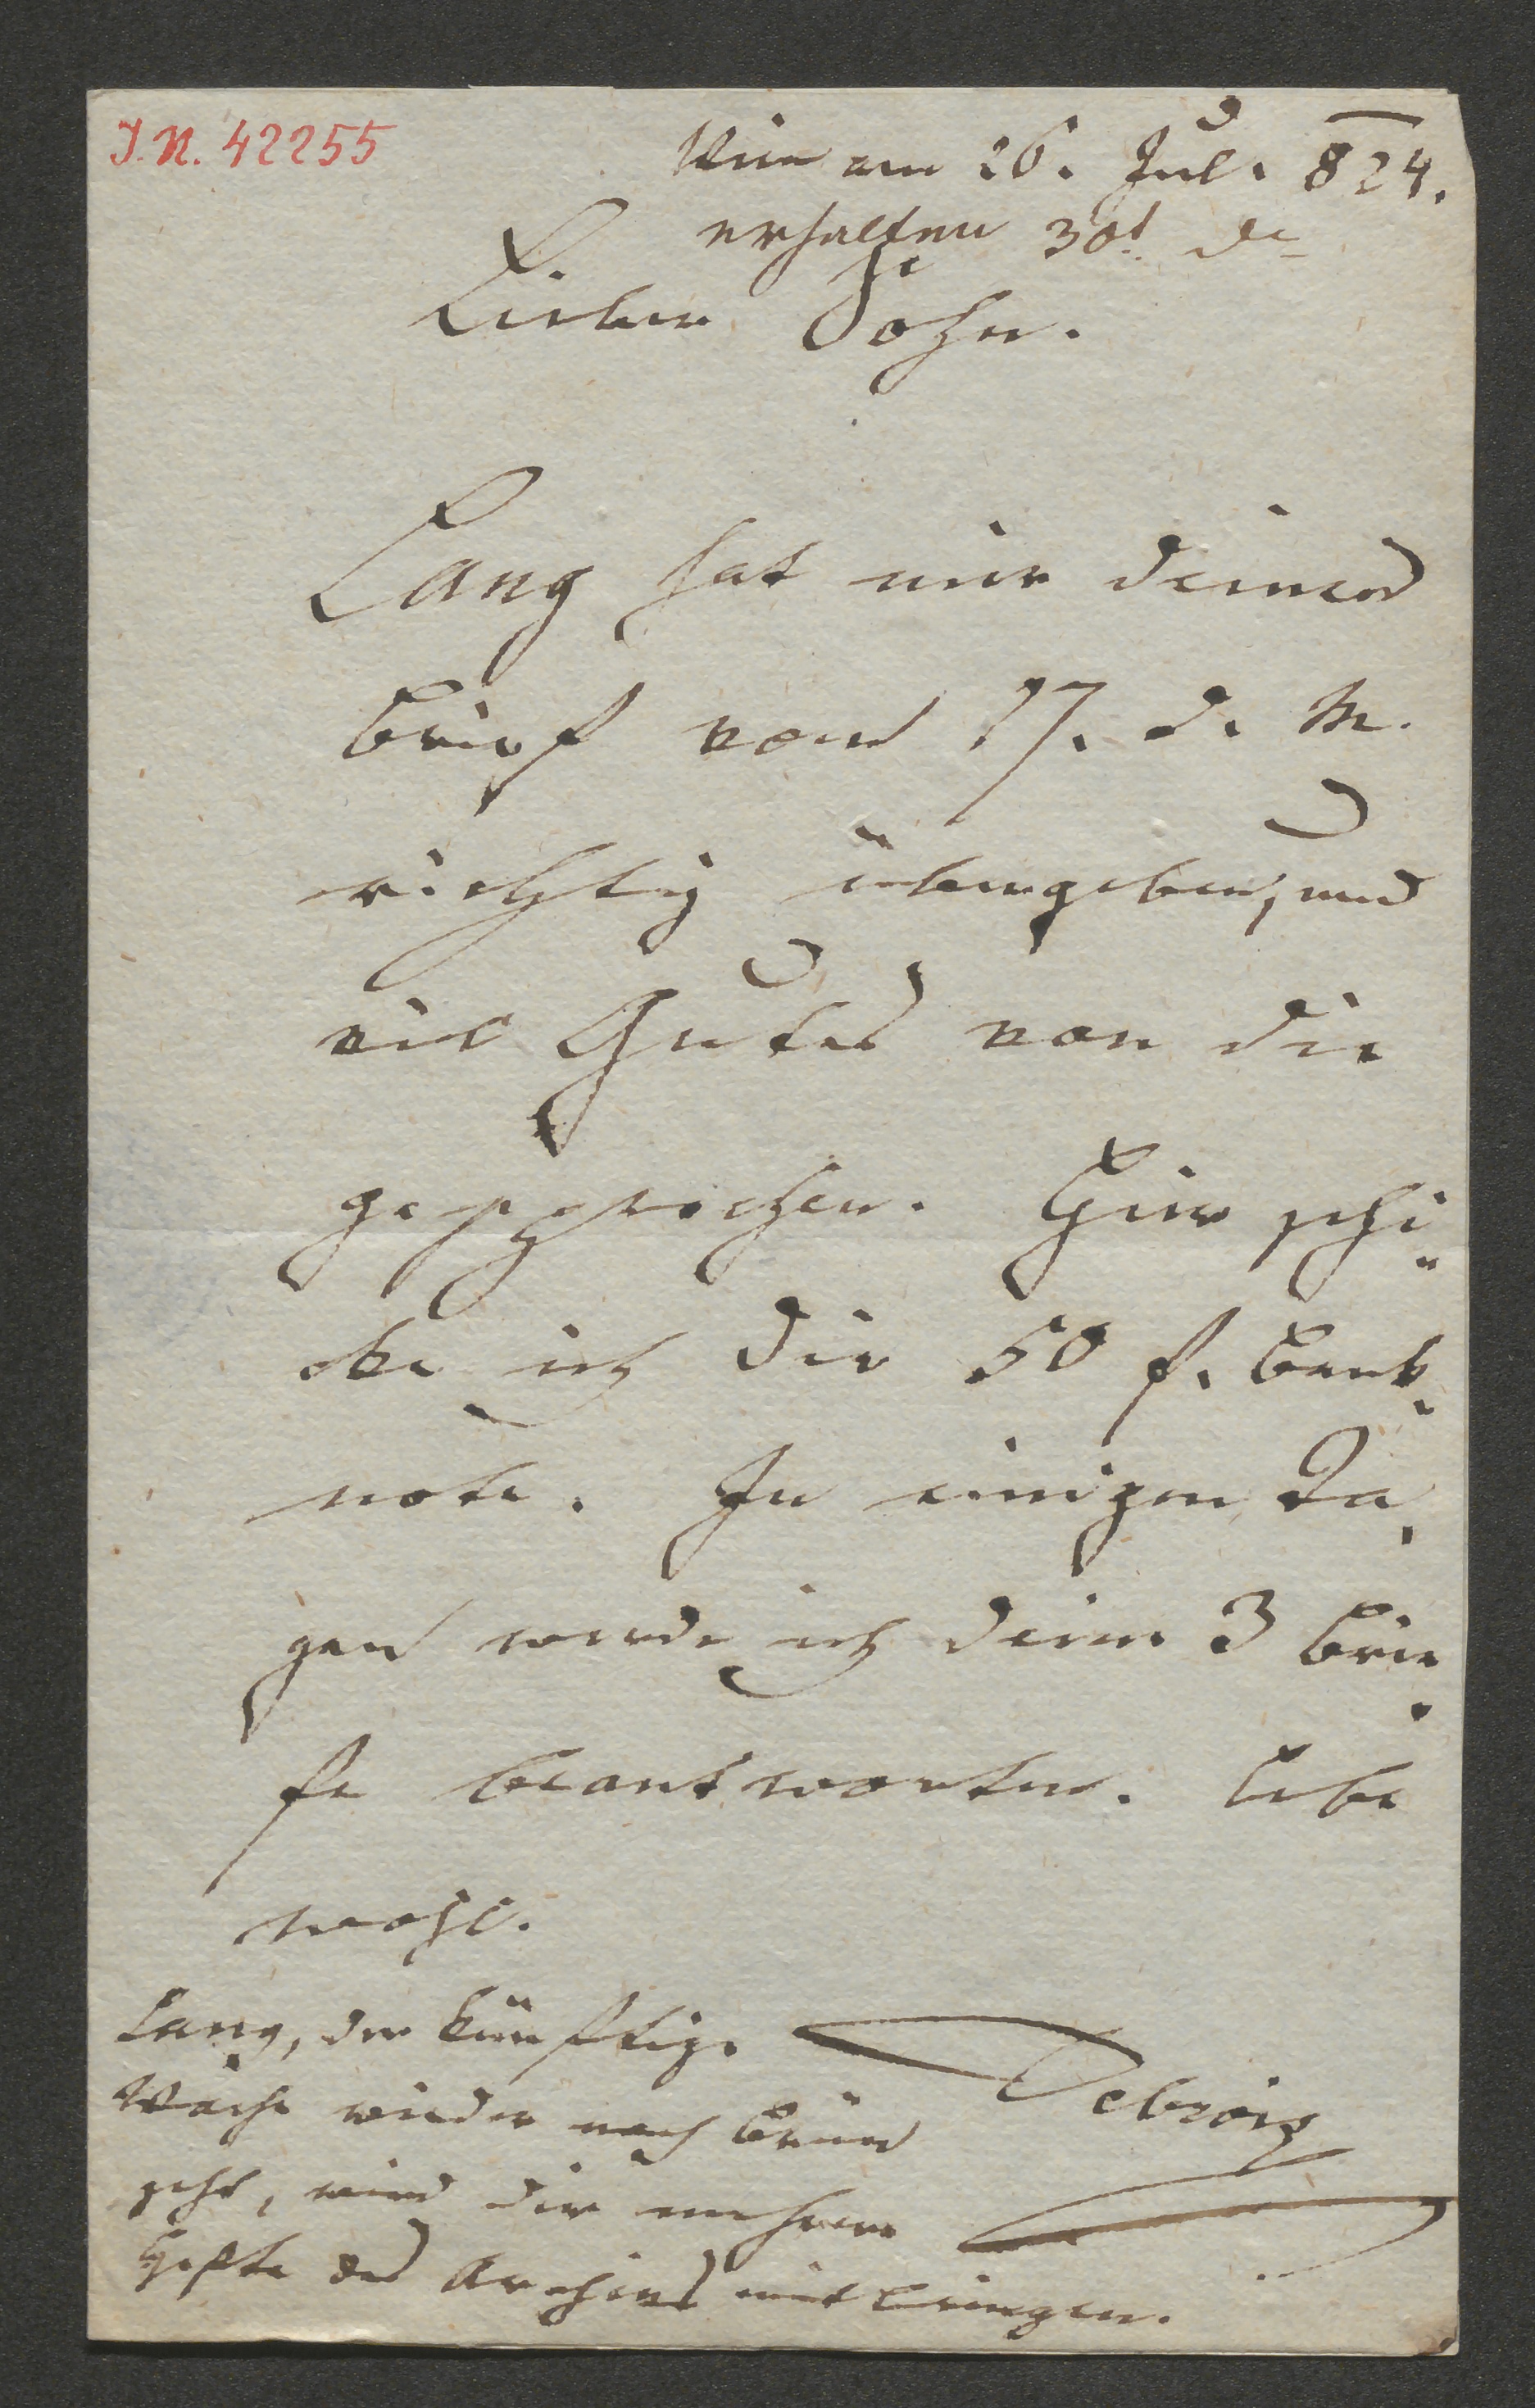 I. N. 42255
Wien am 26. Jul. 824.
erhalten 30t. de
Lieber Sohn.
Lang hat mir deinen
Brief vom 17. d. M.
richtig übergeben, und
viel Gutes von dir
gesprochen. Hier schi„
cke ich dir 50 f. Bank„
note. In einigen Ta„
gen werde ich deine 3 Brie„
fe beantworten. Lebe
wohl.
Lang, der künftige
Woche wieder nach Brünn
geht, wird dir mehrere
Hefte des Archivs mitbringen.
Debrois